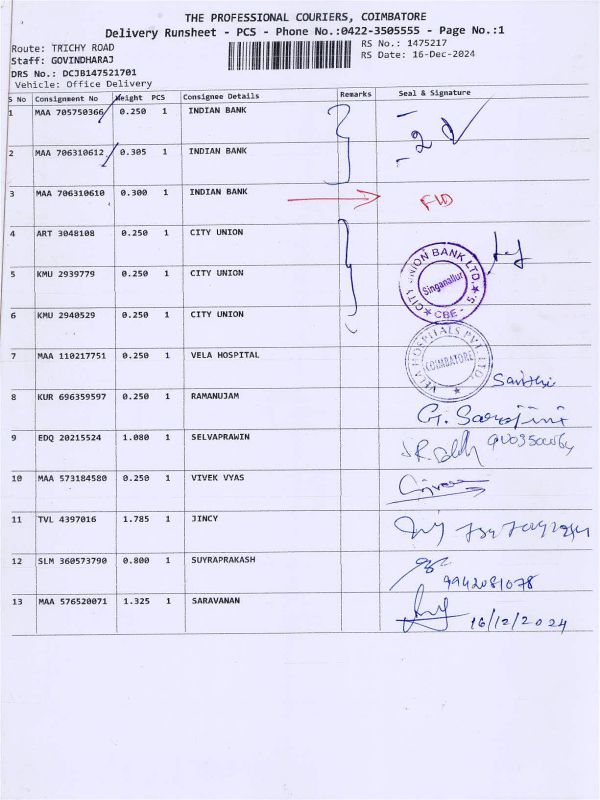 THE PROFESSIONAL COURIERS, COIMBATORE
Delivery Runsheet - PCS - Phone No.:0422-3505555 - Page No.:1
Route: TRICHY ROAD
RS No.: 1475217
Staff: GOVINDHARAJ
RS Date: 16-Dec-2024
DRS No.: DCJB147521701
Vehicle: Office Delivery
S No Consignment No Weight PCS Consignee Details Remarks Seal & Signature
1 MAA 705750366 0.250 1 INDIAN BANK
2 MAA 706310612 0.305 1 INDIAN BANK
3 MAA 706310610 0.300 1 INDIAN BANK
4 ART 3048108 0.250 1 CITY UNION
5 KMU 2939779 0.250 1 CITY UNION
CITY UNION BANK LTD.
Singanallur
CBE - 5.
6 KMU 2940529 0.250 1 CITY UNION
7 MAA 110217751 0.250 1 VELA HOSPITAL
VELA HOSPITALS PVT. LTD.
COIMBATORE
8 KUR 696359597 0.250 1 RAMANUJAM G. Sarojini
9 EDQ 20215524 1.080 1 SELVAPRAWIN
10 MAA 573184580 0.250 1 VIVEK VYAS
11 TVL 4397016 1.785 1 JINCY
12 SLM 360573790 0.800 1 SUYRAPRAKASH 9942081078
13 MAA 576520071 1.325 1 SARAVANAN 16/12/2024